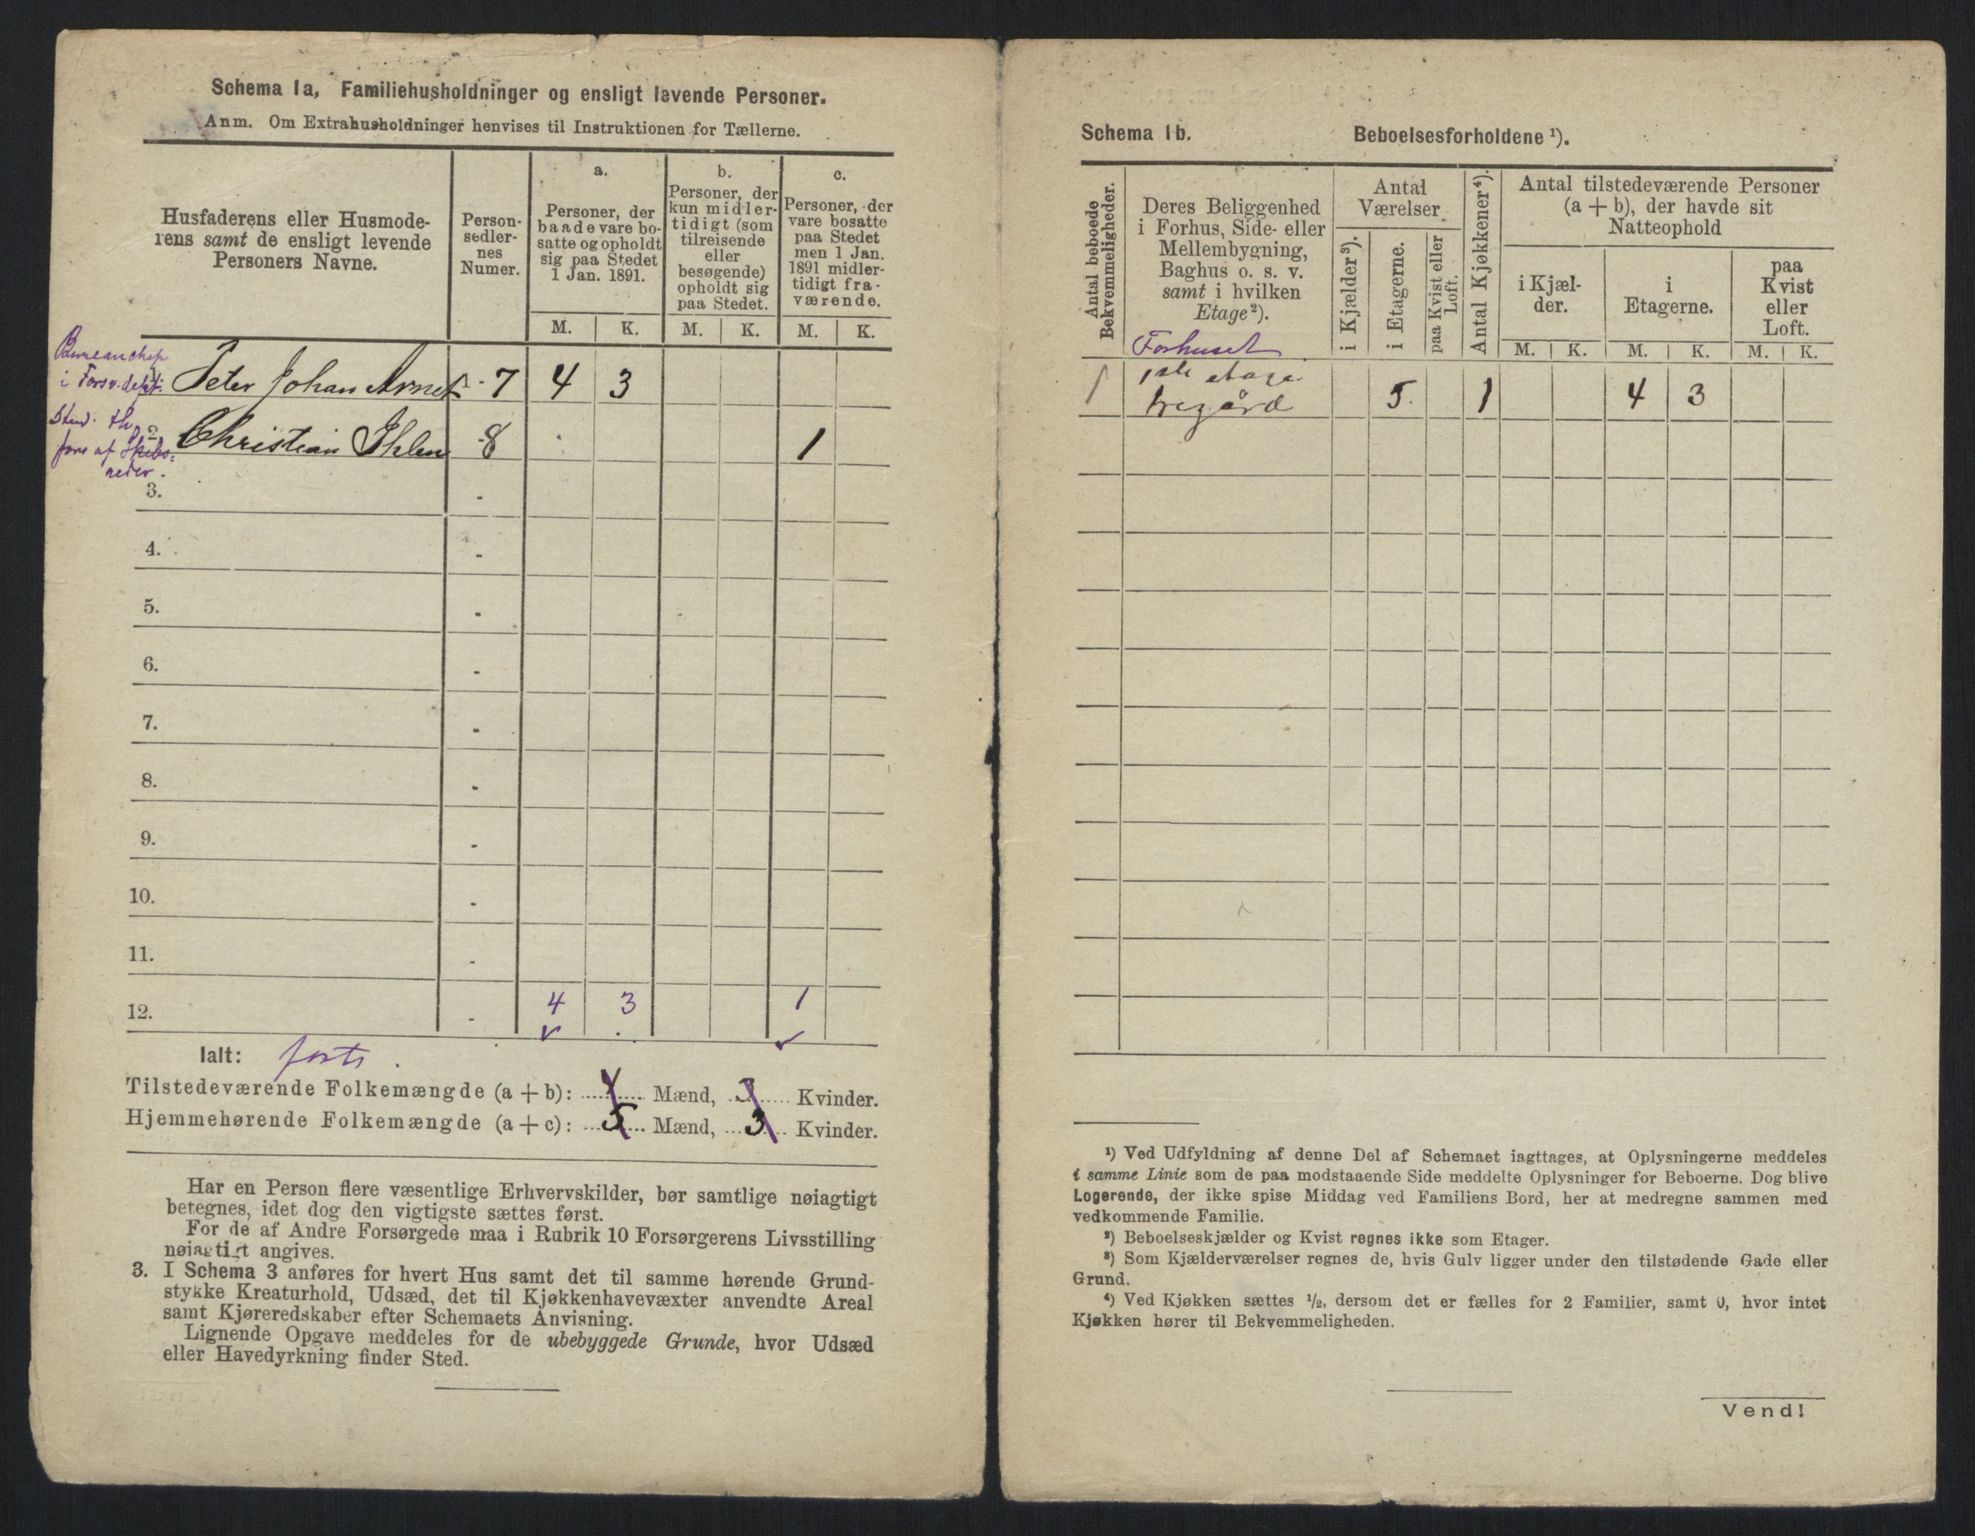 Schema 1a, Familiehusholdninger og ensligt levende Personer.
Anm. Om Extrahusholdninger henvises til Instruktionen for Tællerne.
Husfaderens eller Husmode-
rens samt de ensligt levende
Personers Navne.
Person-
sedler-
nes
Numer.
a.
Personer, der
baade vare bo-
satte og opholdt
sig paa Stedet
1 Jan. 1891.
b.
Personer, der
kun midler-
tidigt (som
tilreisende
eller
besøgende)
opholdt sig
paa Stedet.
c.
Personer, der
vare bosatte
paa Stedet
men 1 Jan.
1891 midler-
tidigt fra-
værende.
M. K. M. K. M. K.
Bureauchef
i Forsv. dept.
Peter Johan Arnet - 7 4 3
Stud. th
fors af Skibs-
reder.
2 Christian Ihlen - 8 1
3. -
4. -
5. -
6. -
7. -
8. -
9. -
10. -
11. -
12. - 4 3 1
Ialt: forts.
Tilstedeværende Folkemængde (a + b): 4 Mænd, 3 Kvinder.
Hjemmehørende Folkemængde (a + c): 5 Mænd, 3 Kvinder.
Har en Person flere væsentlige Erhvervskilder, bør samtlige nøiagtigt
betegnes, idet dog den vigtigste sættes først.
For de af Andre Forsørgede maa i Rubrik 10 Forsørgerens Livsstilling
nøiagtigt angives.
3. I Schema 3 anføres for hvert Hus samt det til samme hørende Grund-
stykke Kreaturhold, Udsæd, det til Kjøkkenhavevæxter anvendte Areal
samt Kjøreredskaber efter Schemaets Anvisning.
Lignende Opgave meddeles for de ubebyggede Grunde, hvor Udsæd
eller Havedyrkning finder Sted.
Schema 1b. Beboelsesforholdene ¹).
Antal beboede
Bekvemmeligheder.
Deres Beliggenhed
i Forhus, Side- eller
Mellembygning,
Baghus o. s. v.
samt i hvilken
Etage ²).
Antal
Værelser
i Kjælder ³).
i Etagerne.
paa Kvist eller
Loft.
Antal Kjøkkener ⁴).
Antal tilstedeværende Personer
(a + b), der havde sit
Natteophold
i Kjæl-
der.
i
Etagerne.
paa
Kvist
eller
Loft.
M. K. M. K. M. K.
Forhuset
1 1ste etage 5. 1 4 3
¹) Ved Udfyldning af denne Del af Schemaet iagttages, at Oplysningerne meddeles
i samme Linie som de paa modstaaende Side meddelte Oplysninger for Beboerne. Dog blive
Logerende, der ikke spise Middag ved Familiens Bord, her at medregne sammen med
vedkommende Familie.
²) Beboelseskjælder og Kvist regnes ikke som Etager.
³) Som Kjælderværelser regnes de, hvis Gulv ligger under den tilstødende Gade eller
Grund.
⁴) Ved Kjøkken sættes ½, dersom det er fælles for 2 Familier, samt 0, hvor intet
Kjøkken hører til Bekvemmeligheden.
Vend!